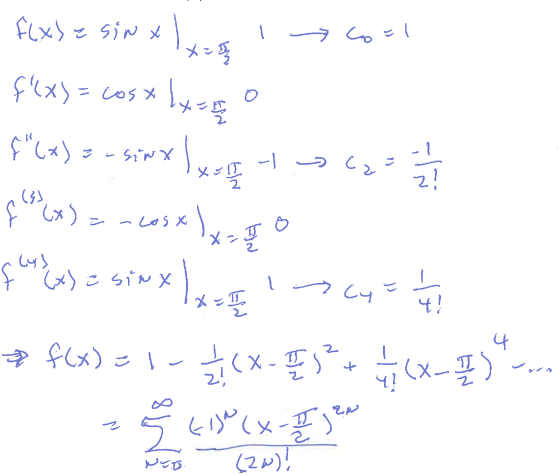 f(x) = sin x |x=π/2 1 → c₀ = 1
f'(x) = cos x |x=π/2 0
f''(x) = -sin x |x=π/2 -1 → c₂ = -1/2!
f⁽³⁾(x) = -cos x |x=π/2 0
f⁽⁴⁾(x) = sin x |x=π/2 1 → c₄ = 1/4!
⇒ f(x) = 1 - 1/2! (x - π/2)² + 1/4! (x - π/2)⁴ - ...
= ∞ Σ N=0 (-1)ᴺ (x - π/2)²ᴺ / (2N)!